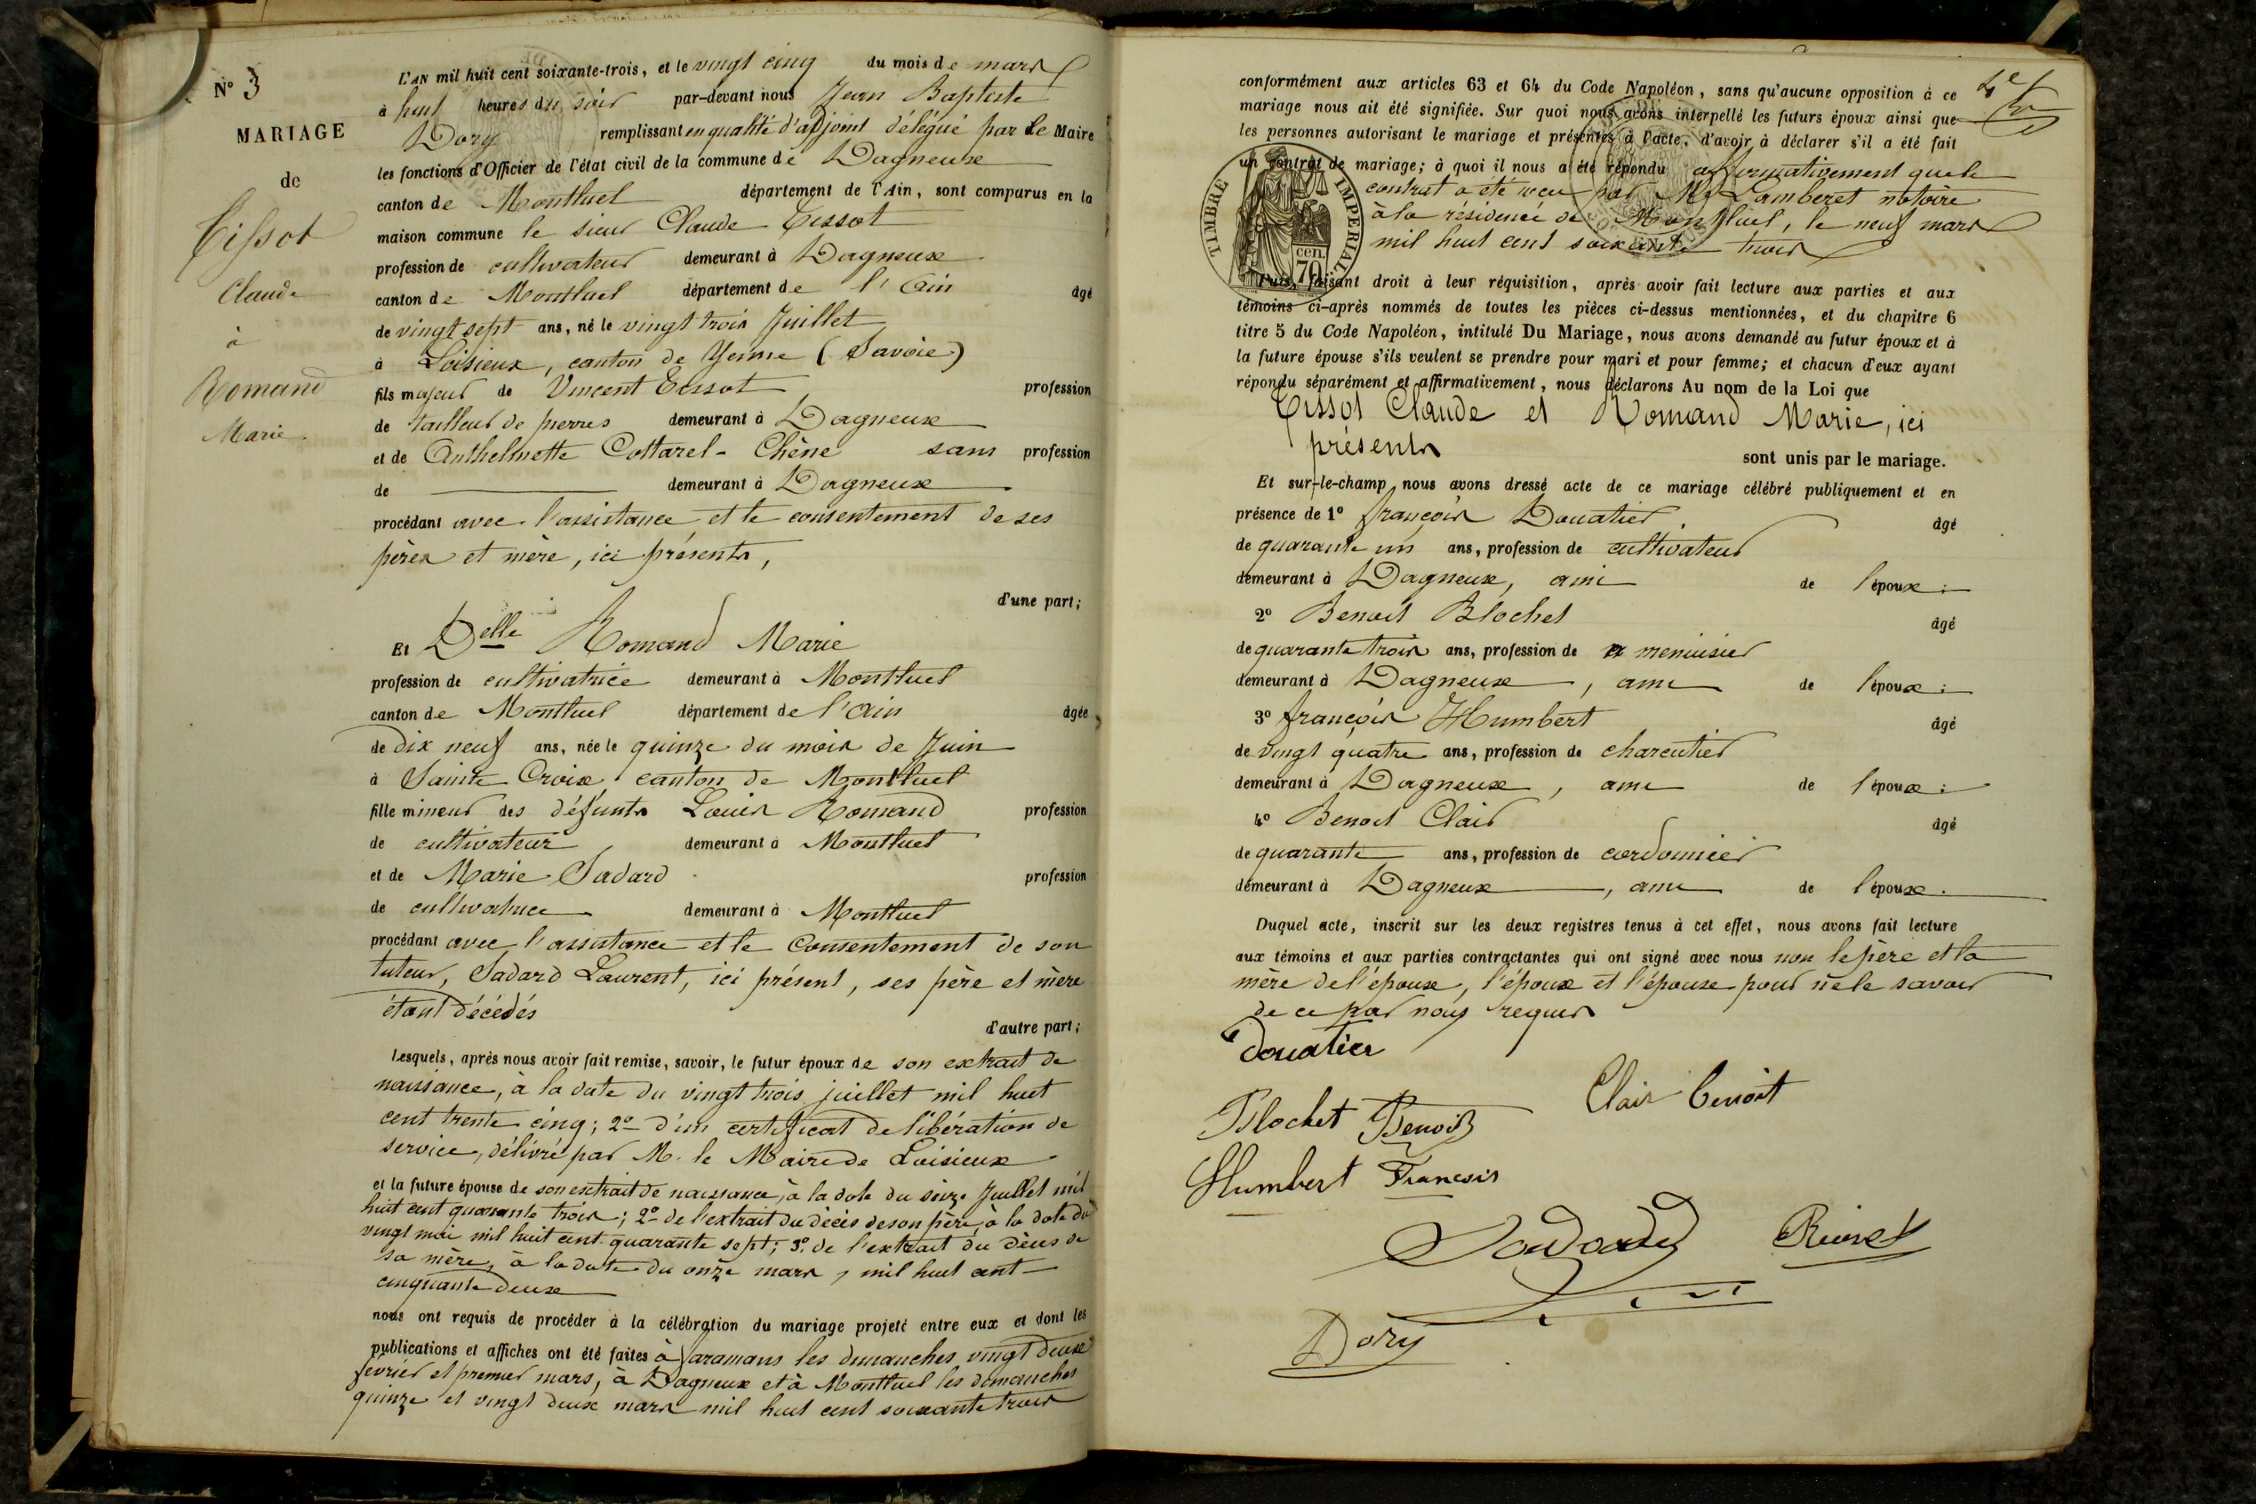 N° 3
MARIAGE
de
Tissot
Claude
à
Romand
Marie
L'AN mil huit cent soixante-trois, et le vingt cinq du mois de mars
à huit heures du soir par-devant nous Jean Baptiste
Dory remplissant en qualité d'adjoint délégué par le Maire
les fonctions d'Officier de l'état civil de la commune de Dagneux
canton de Montluel département de l'Ain, sont comparus en la
maison commune le sieur Claude Tissot
profession de cultivateur demeurant à Dagneux
canton de Montluel département de l'Ain âgé
de vingt sept ans, né le vingt trois Juillet
à Loisieux, canton de Yenne (Savoie)
fils majeur de Vincent Tissot profession
de tailleur de pierres demeurant à Dagneux
et de Anthelmette Cottarel-Chêne sans profession
de demeurant à Dagneux
procédant avec l'assistance et le consentement de ses
pères et mère, ici présents,
d'une part;
Et Delle Romand Marie
profession de cultivatrice demeurant à Montluel
canton de Montluel département de l'Ain âgée
de dix neuf ans, née le quinze du mois de Juin
à Sainte Croix, canton de Montluel
fille mineur des défunts Louis Romand profession
de cultivateur demeurant à Montluel
et de Marie Sadard profession
de cultivatrice demeurant à Montluel
procédant avec l'assistance et le Consentement de son
tuteur, Sadard Laurent, ici présent, ses père et mère
étant décédés
d'autre part;
Lesquels, après nous avoir fait remise, savoir, le futur époux de son extrait de
naissance, à la date du vingt trois juillet mil huit
cent trente cinq; 2° d'un certificat de libération de
service, délivré par M. le Maire de Loisieux
et la future épouse de son extrait de naissance, à la date du seize Juillet mil
huit cent quarante trois; 2° de l'extrait du décès de son père, à la date du
vingt mai mil huit cent quarante sept; 3° de l'extrait du décès de
sa mère, à la date du onze mars, mil huit cent
cinquante deux
nous ont requis de procéder à la célébration du mariage projeté entre eux et dont les
publications et affiches ont été faites à Faramans les dimanches vingt deux
fevrier et premier mars, à Dagneux et à Montluel les dimanches
quinze et vingt deux mars mil huit cent soixante trois
conformément aux articles 63 et 64 du Code Napoléon, sans qu'aucune opposition à ce
mariage nous ait été signifiée. Sur quoi nous avons interpellé les futurs époux ainsi que
les personnes autorisant le mariage et présentes à l'acte, d'avoir à déclarer s'il a été fait
un contrat de mariage; à quoi il nous a été répondu affirmativement que le
contrat a été reçu par Me Lamberet notaire
à la résidence de Montluel, le neuf mars
mil huit cent soixante trois
TIMBRE IMPERIAL
70 cen.
Puis, faisant droit à leur réquisition, après avoir fait lecture aux parties et aux
témoins ci-après nommés de toutes les pièces ci-dessus mentionnées, et du chapitre 6
titre 5 du Code Napoléon, intitulé Du Mariage, nous avons demandé au futur époux et à
la future épouse s'ils veulent se prendre pour mari et pour femme; et chacun d'eux ayant
répondu séparément et affirmativement, nous déclarons Au nom de la Loi que
Tissot Claude et Romand Marie, ici
présents
sont unis par le mariage.
Et sur-le-champ nous avons dressé acte de ce mariage célébré publiquement et en
présence de 1° françois Douatier. âgé
de quarante un ans, profession de cultivateur
demeurant à Dagneux, ami de l'époux;
2° Benoit Blochet âgé
de quarante trois ans, profession de menuisier
demeurant à Dagneux, ami de l'époux;
3° françois Humbert âgé
de vingt quatre ans, profession de charcutier
demeurant à Dagneux, ami de l'époux;
4° Benoit Clair âgé
de quarante ans, profession de cordonnier
demeurant à Dagneux, ami de l'époux.
Duquel acte, inscrit sur les deux registres tenus à cet effet, nous avons fait lecture
aux témoins et aux parties contractantes qui ont signé avec nous non le père et la
mère de l'époux, l'époux et l'épouse pour ne le savoir
de ce par nous requis
Douatier
Clair benoit
Blochet Benoit
Humbert Francois
Dory